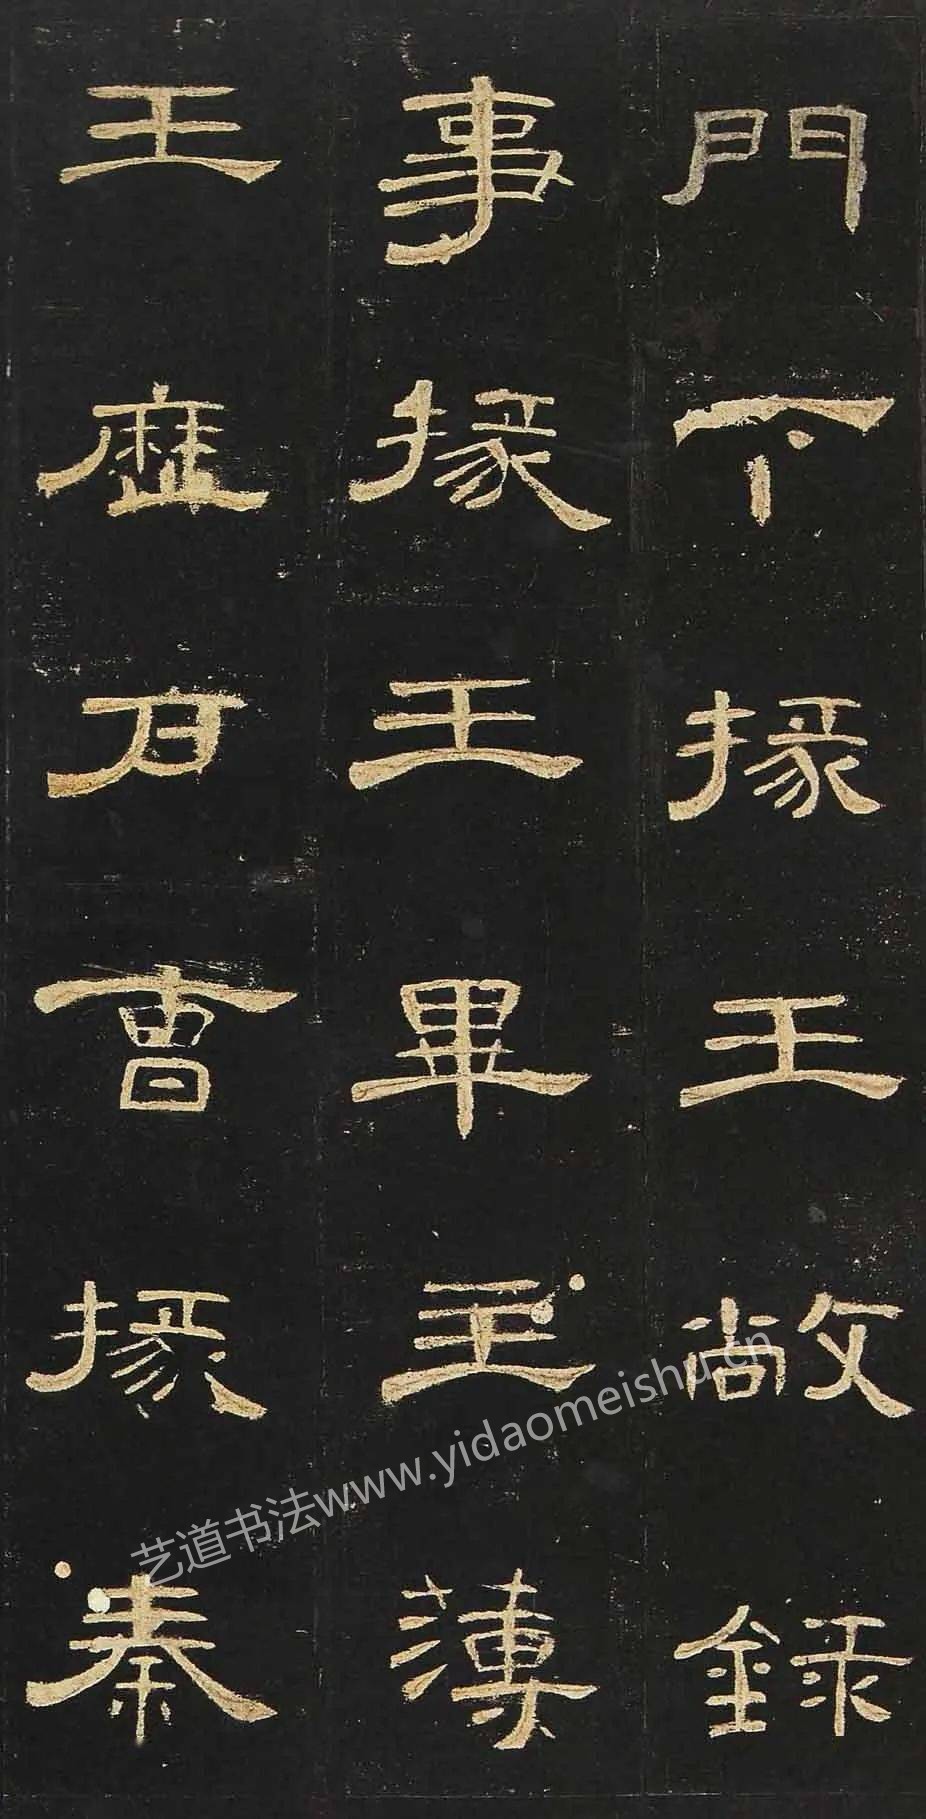 門下掾王敞錄
事掾王畢主薄
王歷户曹掾秦
艺道书法www.yidaomeishu.cn